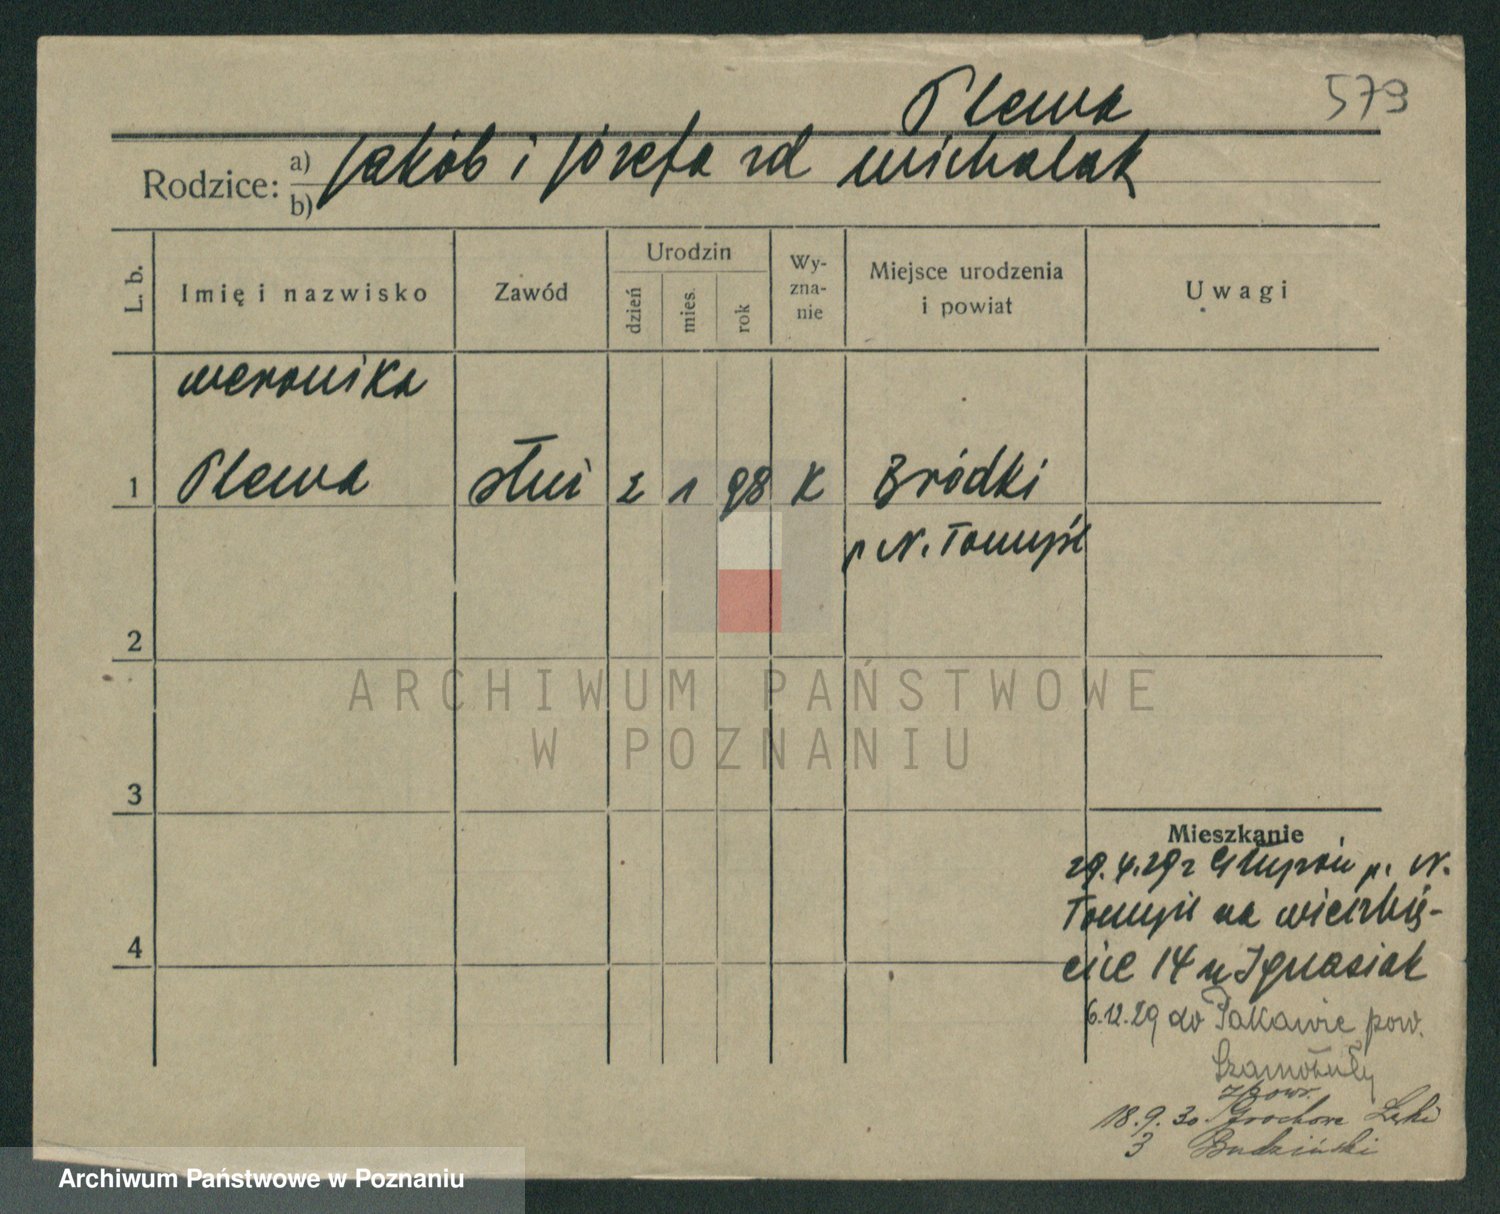 579
Plewa
Rodzice: a) Jakób i Józefa zd Michalak
b)
L. b.
Imię i nazwisko
Zawód
Urodzin
dzień
mies.
rok
Wy-
zna-
nie
Miejsce urodzenia
i powiat
Uwagi
Weronika
1 Plewa służ 2 1 98 K Bródki
p N. Tomyśl
2
3
4
ARCHIWUM PAŃSTWOWE
W POZNANIU
Mieszkanie
29.4.29 z p. N.
Tomyśl na Wierzbię-
cice 14 u Ignasiak
6.12.29 do Pakawie pow.
Szamotuły
z pow.
18.9.30. Grochowe Łąki
3 Budziński
Archiwum Państwowe w Poznaniu